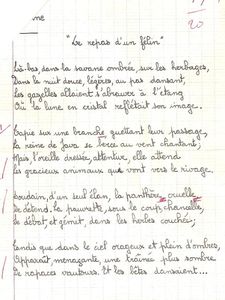 me
20
"Le repas d'un félin"
Là-bas dans la savane ombrée, sur les herbages,
Dans la nuit douce, légères, au pas dansant,
Les gazelles allaient s'abreuver à l'étang
Où la lune en cristal reflétait son image.
Tapie sur une branche guettant leur passage,
La reine de Java se berce au vent chantant;
Mais l'oreille dressée, attentive, elle attend
Les gracieux animaux que vont vers le rivage.
Soudain, d'un seul élan, la panthère cruelle
Se détend. La pauvrette, sous le coup, chancelle,
Se débat, et gémit, dans les herbes couchée;
Tandis que dans le ciel orageux et plein d'ombres,
Apparaît menaçante, une traînée plus sombre
De rapaces vautours. Et les bêtes dansaient...